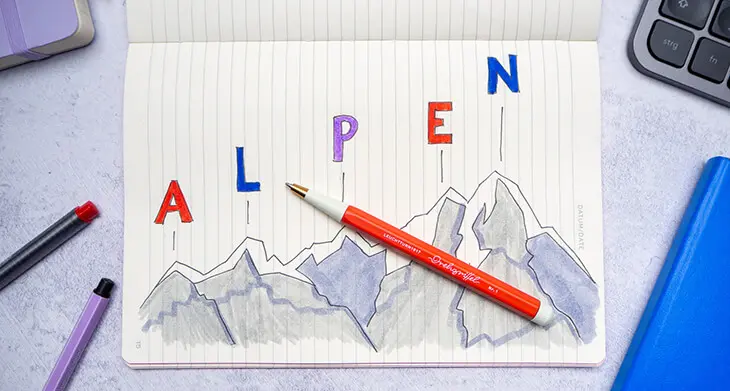 ALPEN
LEUCHTTURM1917
Drehgriffel
Nr. 1
DATUM/DATE
strg
fn